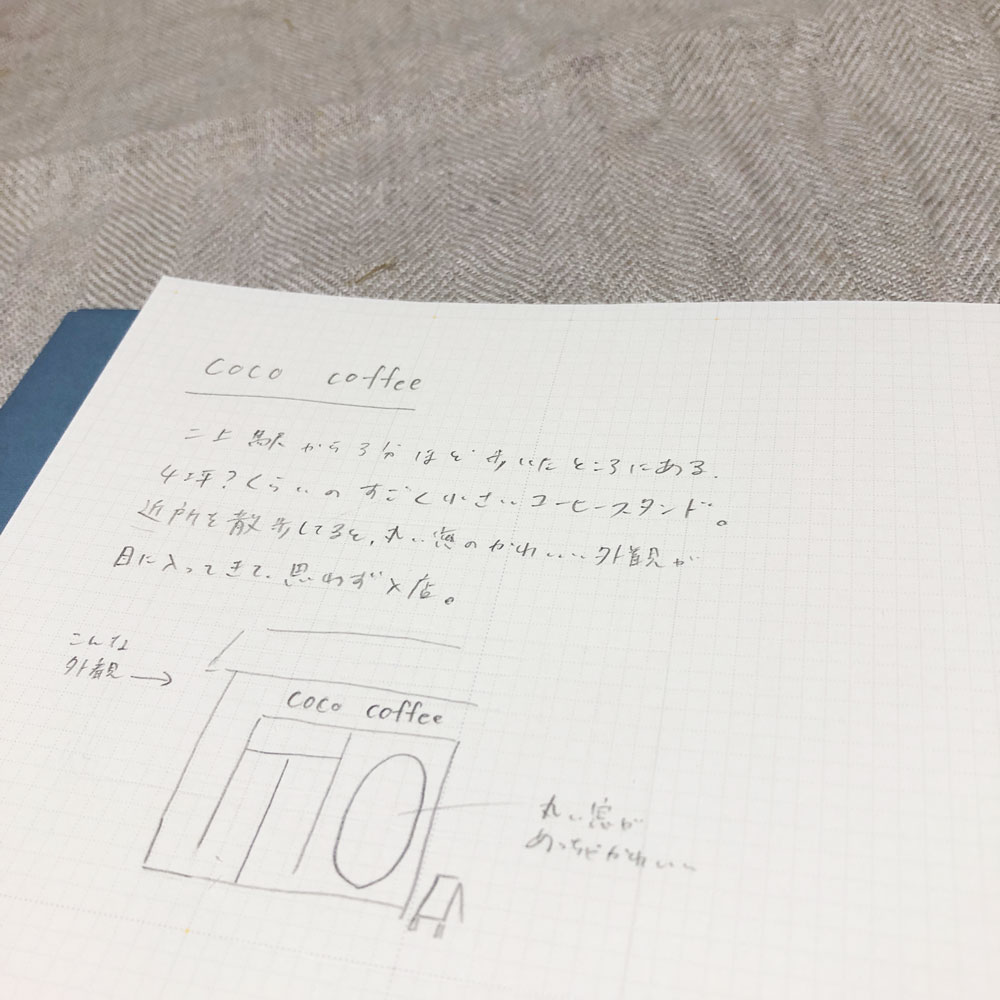 coco coffee
二上駅から3分ほど歩いたところにある.
4坪?くらいのすごく小さいコーヒースタンド。
近所を散歩してると、丸い窓のかわいい外観が
目に入ってきて、思わず入店。
こんな
外観→
coco coffee
丸い窓が
めっちゃかわいい